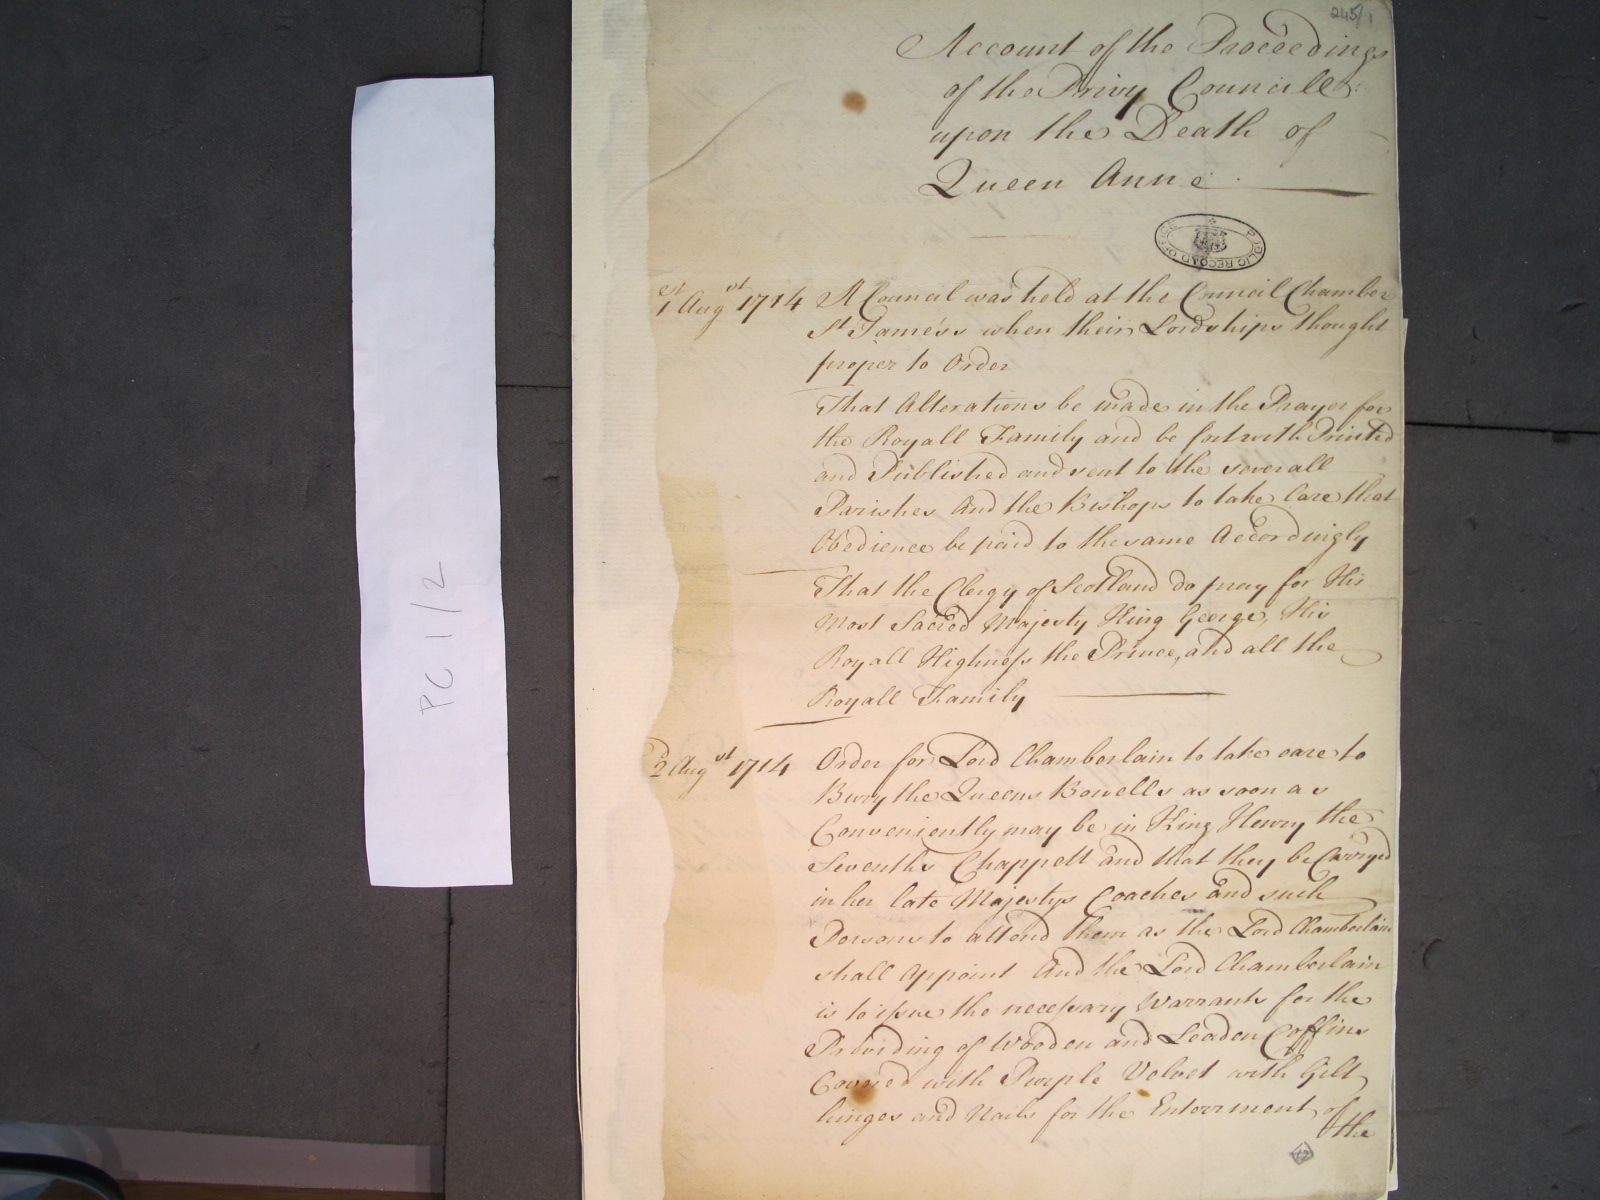 245/1
Account of the Proceedings
of the Privy Councill:
upon the Death of
Queen Anne.
PUBLIC RECORD OFFICE
1st Augst 1714 A Council was held at the Council Chamber
St James's when their Lordships thought
proper to Order
That Alterations be made in the Prayer for
the Royall Family and be fortwith Printed
and Published and sent to the severall
Parishes And the Bishops to take Care that
Obedience be paid to the same Accordingly
That the Clergy of Scotland do pray for His
Most Sacred Majesty King George, His
Royall Highness the Prince, and all the
Royall Family
2d Augst 1714 Order for Lord Chamberlain to take care to
Bury the Queens Bowells as soon as
Conveniently may be in King Henry the
Sevenths Chappell and that they be Carryed
in her late Majestys Coaches and such
Persons to attend them as the Lord Chamberlain
shall Appoint And the Lord Chamberlain
is to issue the necessary Warrants for the
Providing of Wooden and Leaden Coffins
Covered with Purple Velvet with Gilt
hinges and Nails for the Enterrment of
the
PC 1/2